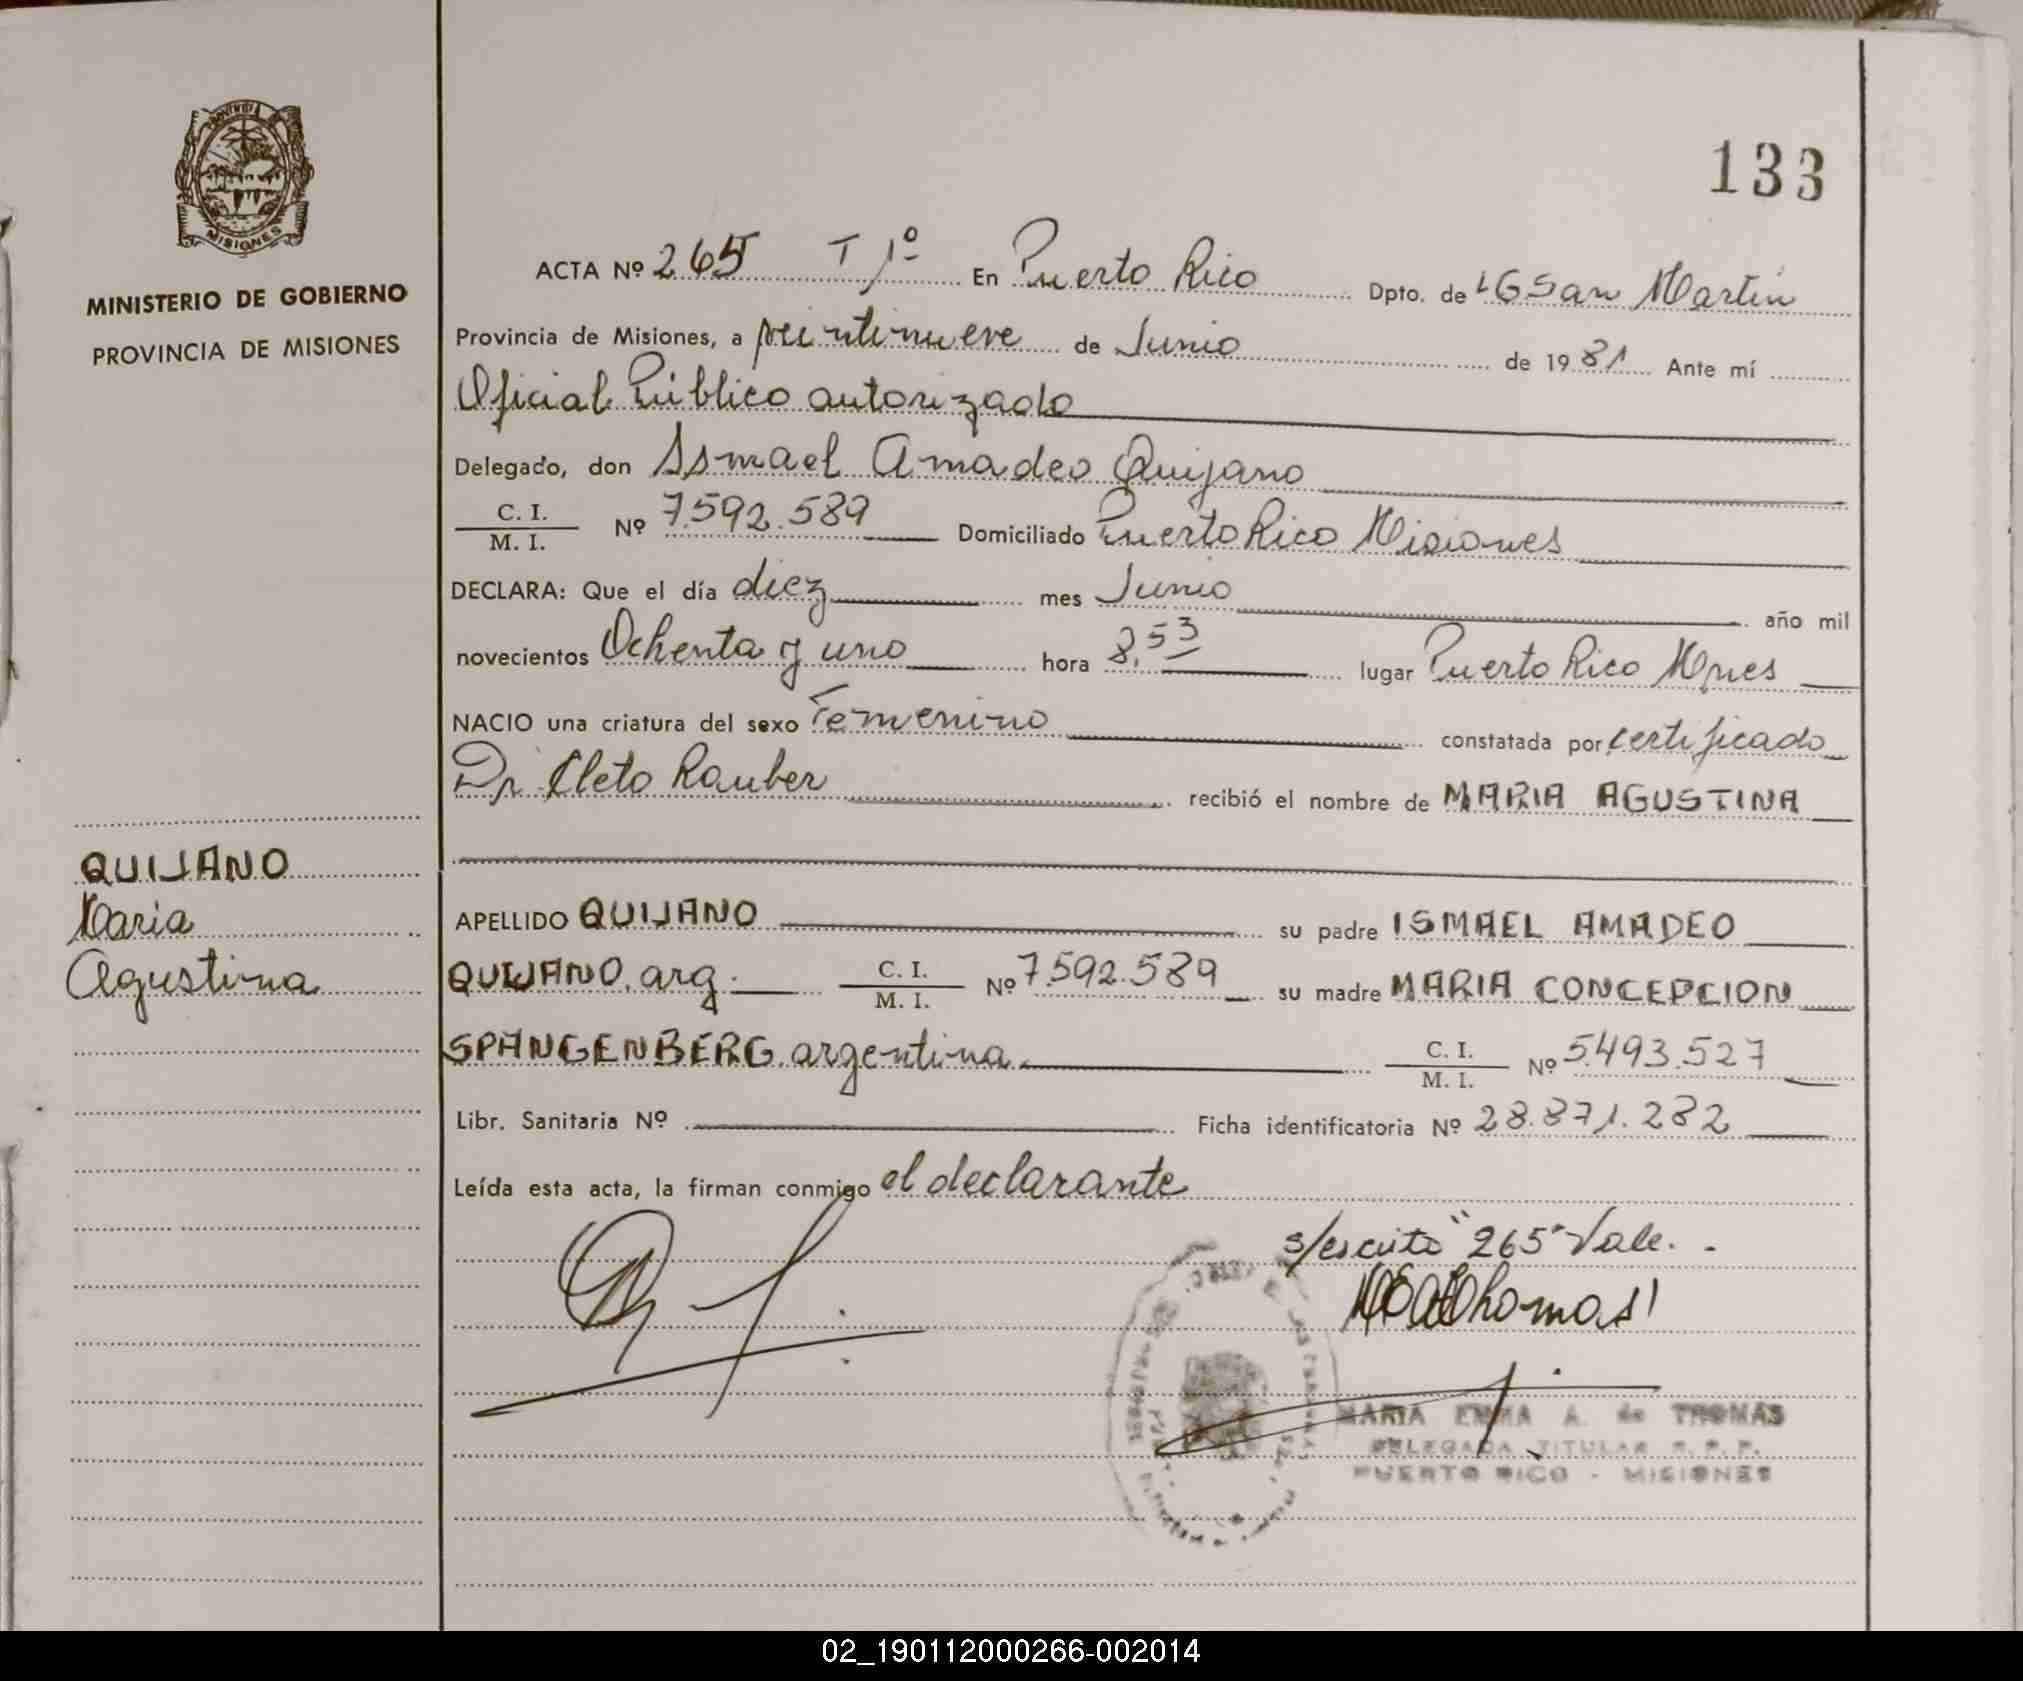 133
PROVINCIA
MISIONES
MINISTERIO DE GOBIERNO
PROVINCIA DE MISIONES
ACTA Nº 265 T 1º En Puerto Rico Dpto. de LG San Martín
Provincia de Misiones, a veintinueve de Junio de 1981 Ante mí
Oficial Público autorizado
Delegado, don Ismael Amadeo Quijano
C. I.
M. I. Nº 7.592.589 Domiciliado Puerto Rico Misiones
DECLARA: Que el día diez mes Junio año mil
novecientos Ochenta y uno hora 8,53 lugar Puerto Rico Mnes
NACIO una criatura del sexo Femenino constatada por certificado
Dr Cleto Rauber recibió el nombre de MARIA AGUSTINA
QUIJANO
Maria
Agustina
APELLIDO QUIJANO su padre ISMAEL AMADEO
QUIJANO, arg. C. I.
M. I. Nº 7.592.589 su madre MARIA CONCEPCION
SPANGENBERG, argentina C. I.
M. I. Nº 5.493.527
Libr. Sanitaria Nº Ficha identificatoria Nº 28.871.282
Leída esta acta, la firman conmigo el declarante
s/escrito "265" Vale.-
MARIA EMMA A. de THOMAS
DELEGADA TITULAR R. P. P.
PUERTO RICO - MISIONES
02_190112000266-002014